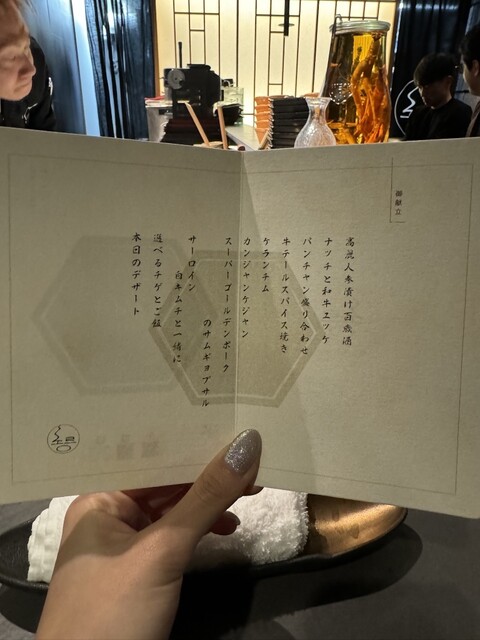 御献立
高麗人参漬け百歳酒
ナッチと和牛ユッケ
パンチャン盛り合わせ
牛テールスパイス焼き
ケランチム
カンジャンケジャン
スーパーゴールデンポーク
のサムギョプサル
サーロイン
白キムチと一緒に
選べるチゲとご飯
本日のデザート